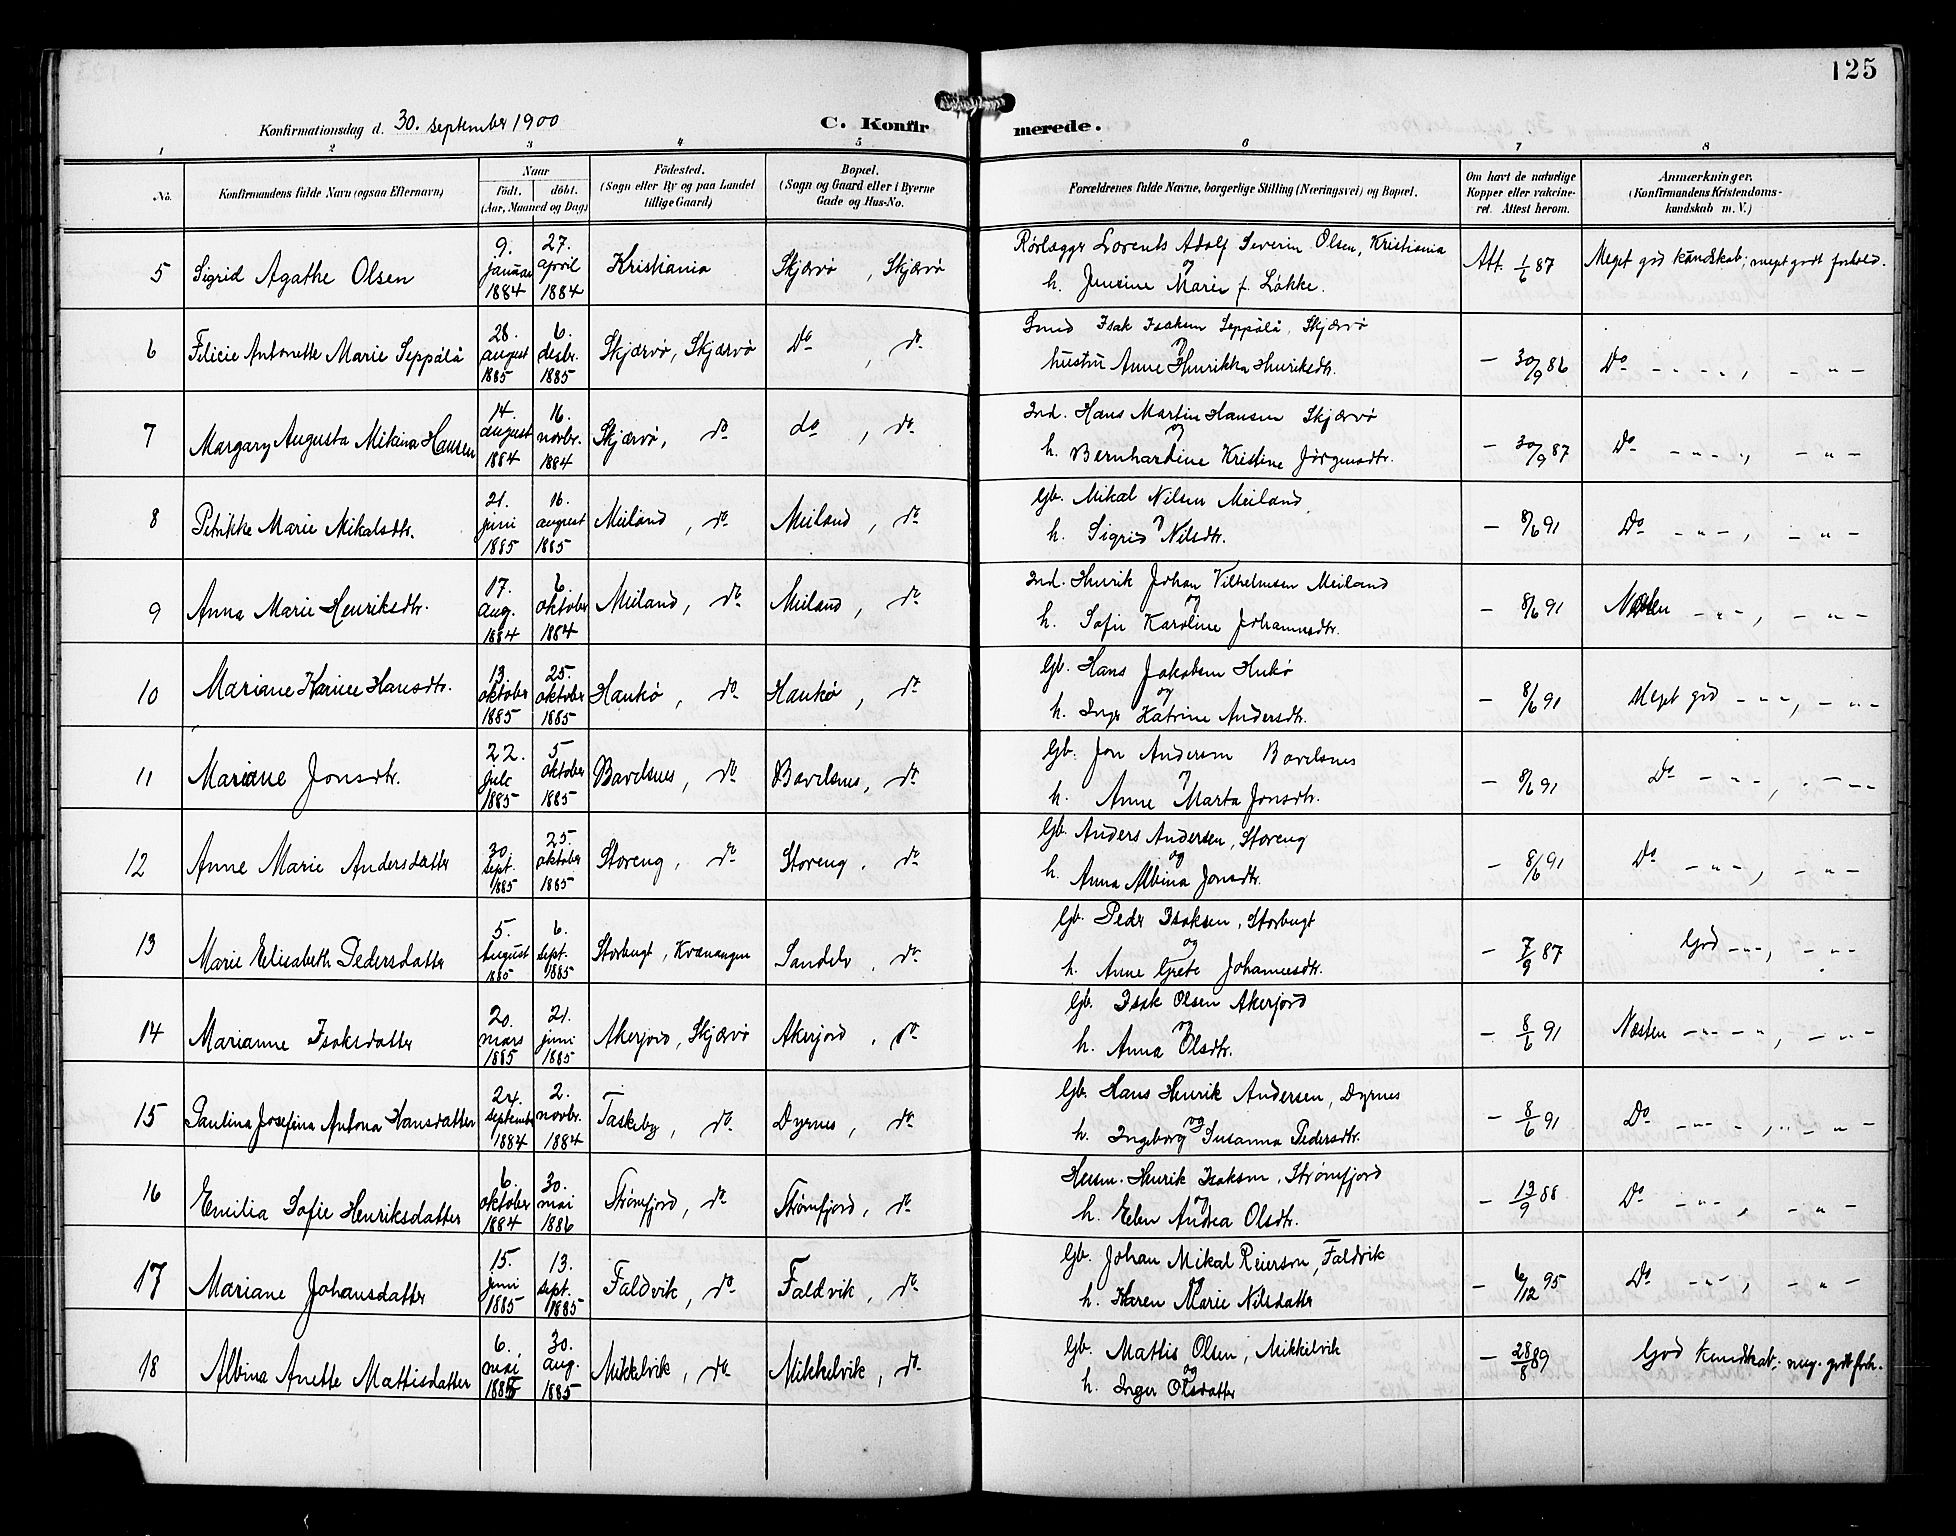 125
Konfirmationsdag d. 30. september 1900
C. Konfirmerede.
1 2 3 4 5 6 7 8
No. Konfirmandens fulde Navn (ogsaa Efternavn) Naar født. døbt. (Aar, Maaned og Dag) Fødested. (Sogn eller By og paa Landet tillige Gaard) Bopæl. (Sogn og Gaard eller i Byerne Gade og Hus-No. Forældrenes fulde Navne, borgerlige Stilling (Næringsvei) og Bopæl. Om havt de naturlige Kopper eller vakcineret. Attest herom. Anmærkninger. (Konfirmandens Kristendomskundskab m. V.)
5 Sigrid Agathe Olsen 9. januar 1884 27. april 1884 Kristiania Skjærvø, Skjærvø Rørlægger Lorents Adolf Severin Olsen, Kristiania og h. Jensine Marie f. Løkke. Att. 1/6 87 Meget god kundskab; meget godt forhold.
6 Felicie Antonette Marie Seppälä 28. august 1885 6. desbr. 1885 Skjærvø, Skjærvø Do, do Smed Isak Isaksen Seppälä, Skjærvø og hustru Anne Henrikka Henriksdtr. - 30/9 86 Do - - - -, - " -
7 Margary Augusta Mikina Hansen 14. august 1884 16. novbr. 1884 Skjærvø, do do, do Ind. Hans Martin Hansen Skjærvø og h. Bernhardine Kristine Jørgensdtr. - 30/9 87 Do - " - ", - " -
8 Petrikke Marie Mikalsdtr. 21. juni 1885 16. august 1885 Meiland, do Meiland, do Gb. Mikal Nilsen Meiland, og h. Sigrid Nilsdtr. - 8/6 91 Do - " -, - " -
9 Anna Marie Henriksdtr. 17. aug. 1884 6 oktober 1884 Meiland, do Meiland, do Ind. Henrik Johan Vilhelmsen Meiland og h. Sofie Karoline Johannesdtr. - 8/6 91 Næsten - " -, - " -
10 Mariane Karine Hansdtr. 13. oktober 1885 25. oktober 1885 Haukø, do Haukø, do Gb. Hans Jakobsen Hukø og h. Inger Katrine Andersdtr. - 8/6 91 Meget god - " -, - " -
11 Mariane Jonsdtr. 22. juli 1885 5 oktober 1885 Bavelsnes, do Bavelsnes, do Gb. Jon Andersen Bavelsnes og h. Anne Marta Jonsdtr. - 8/6 91 Do - " -, - " -
12 Anne Marie Andersdatter 30. sept. 1885 25. oktober 1885 Storeng, do Storeng, do Gb. Anders Andersen, Storeng og h. Anna Albina Jonsdtr. - 8/6 91 Do - " -, - " -
13 Marie Elisabeth Pedersdatter 5. august 1885 6. sept. 1885 Storbugt, Kvænangen Sandelv, do Gb. Peder Isaksen, Storbugt og h. Anne Grete Johannesdtr. - 7/9 87 God - " -, - " -
14 Marianne Isaksdatter 20. mars 1885 21. juni 1885 Akerjord, Skjærvø Akerjord, do Gb. Isak Olsen Akerjord og h. Anna Olsdtr. - 8/6 91 Næsten - " - " -, - " -
15 Paulina Josefina Antona Hansdatter 24. september 1884 2. novbr. 1884 Taskeby, do Dyrnes, do Gb. Hans Henrik Andersen, Dyrnes og h. Ingeborg Susanna Pedersdtr. - 8/6 91 Do - " - -, - " -
16 Emilia Sofie Henriksdatter 6. oktober 1884 30. mai 1886 Strømfjord, do Strømfjord, do Husm. Henrik Isaksen, Strømfjord og h. Elen Andrea Olsdtr. - 13/9 88 Do - " -, - " -
17 Mariane Johansdatter 15. juni 1885 13. sept. 1885 Faldvik, do Faldvik, do Gb. Johan Mikal Reierson, Faldvik og h. Karen Marie Nilsdatter - 6/12 95 Do - " -, - " -
18 Albina Anette Mattisdatter 6. mai 1885 30. aug. 1885 Mikkelvik, do Mikkelvik, do Gb. Mattis Olsen, Mikkelvik og h. Inger Olsdatter - 28/8 89 God kundskab; meg. godt forh.